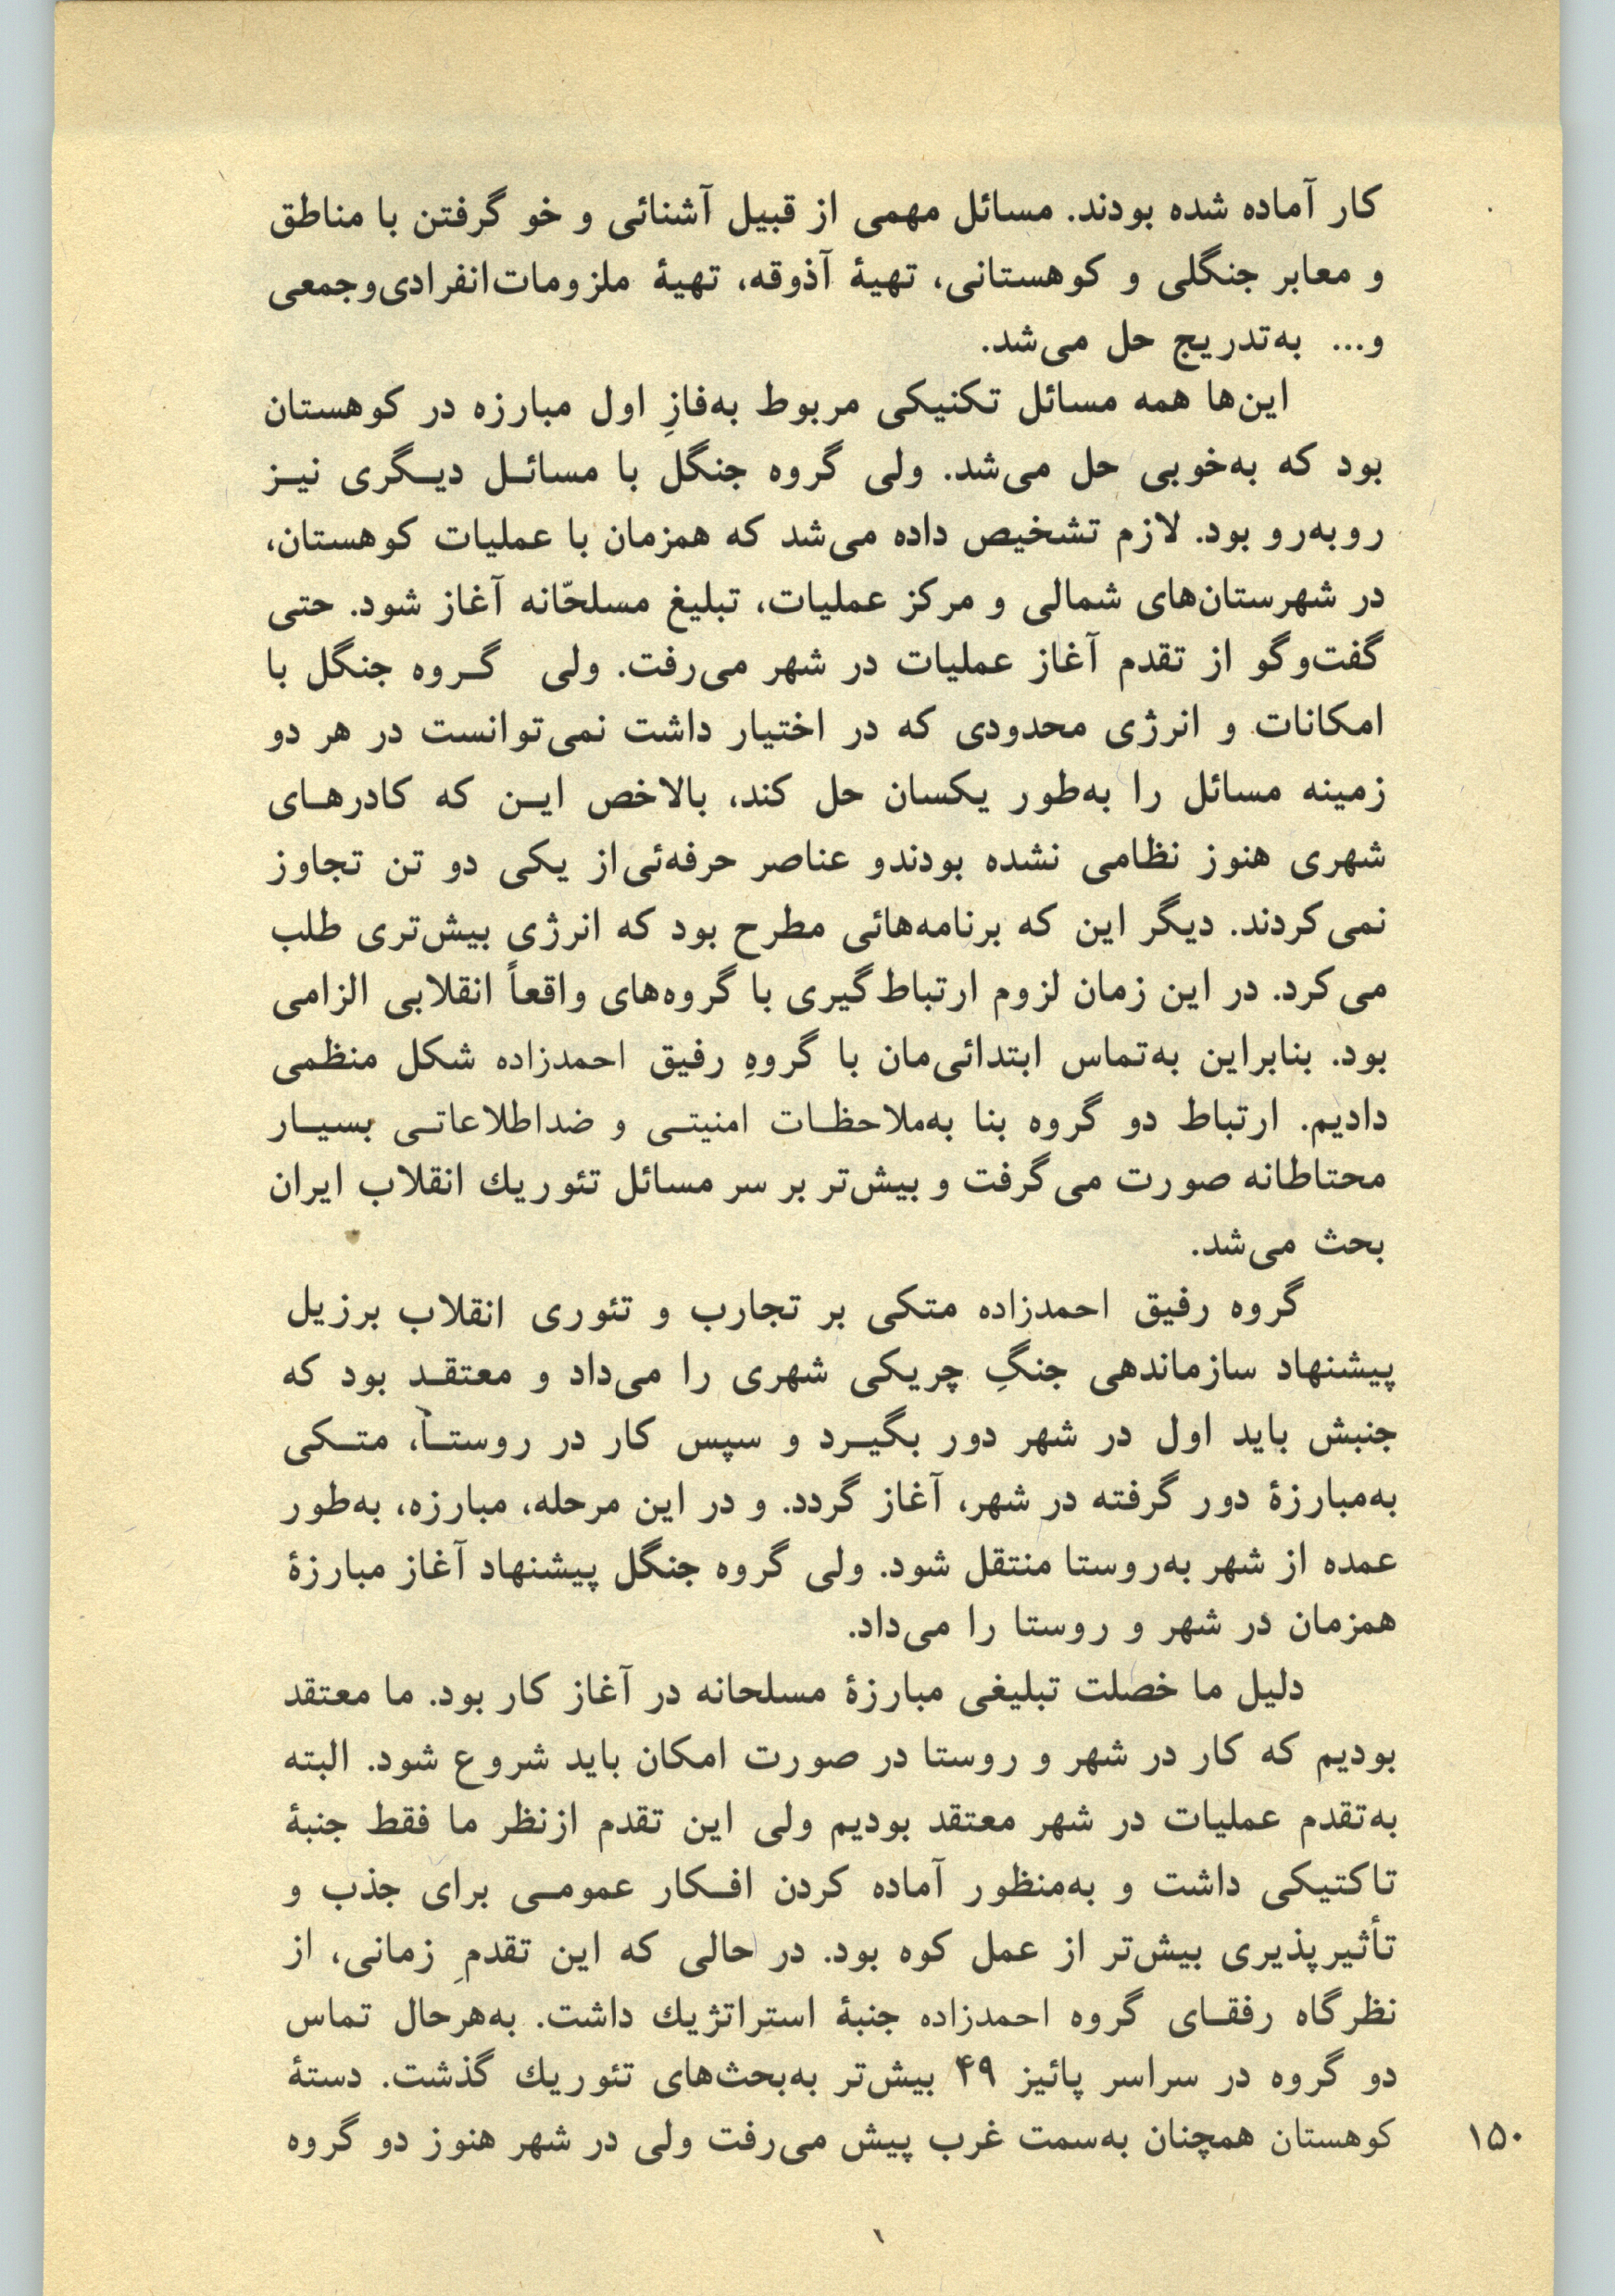 کار آماده شده بودند. مسائل مهمی از قبیل آشنائی و خو گرفتن با مناطق
و معابر جنگلی و کوهستانی، تهیهٔ آذوقه، تهیهٔ ملزومات‌انفرادی‌وجمعی
و... به‌تدریج حل می‌شد.
این‌ها همه مسائل تکنیکی مربوط به‌فازِ اول مبارزه در کوهستان
بود که به‌خوبی حل می‌شد. ولی گروه جنگل با مسائـل دیـگری نیـز
روبه‌رو بود. لازم تشخیص داده می‌شد که همزمان با عملیات کوهستان،
در شهرستان‌های شمالی و مرکز عملیات، تبلیغ مسلحّانه آغاز شود. حتی
گفت‌وگو از تقدم آغاز عملیات در شهر می‌رفت. ولی گـروه جنگل با
امکانات و انرژی محدودی که در اختیار داشت نمی‌توانست در هر دو
زمینه مسائل را به‌طور یکسان حل کند، بالاخص ایـن که کادرهـای
شهری هنوز نظامی نشده بودندو عناصر حرفه‌ئی‌از یکی دو تن تجاوز
نمی‌کردند. دیگر این که برنامه‌هائی مطرح بود که انرژی بیش‌تری طلب
می‌کرد. در این زمان لزوم ارتباط‌گیری با گروه‌های واقعاً انقلابی الزامی
بود. بنابراین به‌تماس ابتدائی‌مان با گروهِ رفیق احمدزاده شکل منظمی
دادیم. ارتباط دو گروه بنا به‌ملاحظـات امنیتـی و ضداطلاعاتـی بسیـار
محتاطانه صورت می‌گرفت و بیش‌تر بر سر مسائل تئوریك انقلاب ایران
بحث می‌شد.
گروه رفیق احمدزاده متکی بر تجارب و تئوری انقلاب برزیل
پیشنهاد سازماندهی جنگِ چریکی شهری را می‌داد و معتقـد بود که
جنبش باید اول در شهر دور بگیـرد و سپس کار در روستـا، متـکی
به‌مبارزهٔ دور گرفته در شهر، آغاز گردد. و در این مرحله، مبارزه، به‌طور
عمده از شهر به‌روستا منتقل شود. ولی گروه جنگل پیشنهاد آغاز مبارزهٔ
همزمان در شهر و روستا را می‌داد.
دلیل ما خصلت تبلیغی مبارزهٔ مسلحانه در آغاز کار بود. ما معتقد
بودیم که کار در شهر و روستا در صورت امکان باید شروع شود. البته
به‌تقدم عملیات در شهر معتقد بودیم ولی این تقدم ازنظر ما فقط جنبهٔ
تاکتیکی داشت و به‌منظور آماده کردن افـکار عمومـی برای جذب و
تأثیرپذیری بیش‌تر از عمل کوه بود. در حالی که این تقدمِ زمانی، از
نظرگاه رفقـای گروه احمدزاده جنبهٔ استراتژیك داشت. به‌هرحال تماس
دو گروه در سراسر پائیز ۴۹ بیش‌تر به‌بحث‌های تئوریك گذشت. دستهٔ
کوهستان همچنان به‌سمت غرب پیش می‌رفت ولی در شهر هنوز دو گروه
۱۵۰